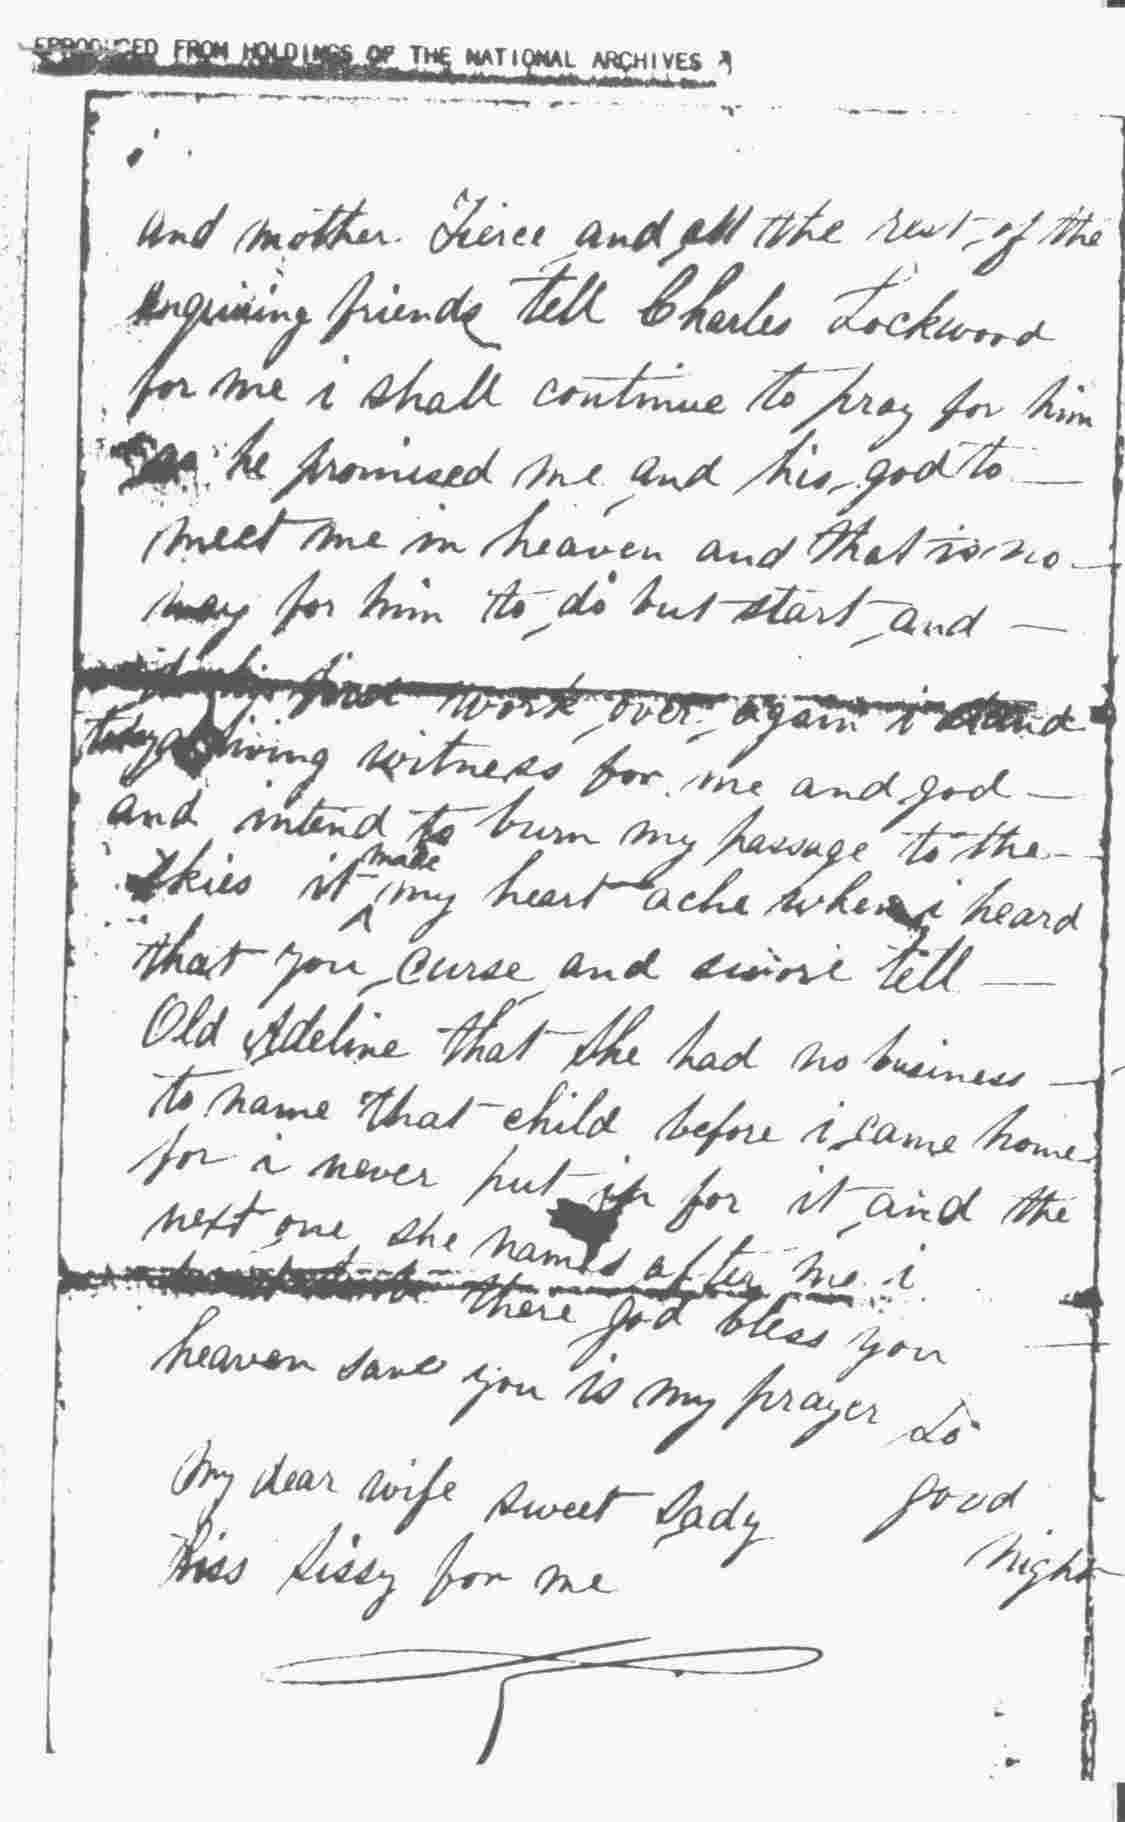 EPRODUCED FROM HOLDINGS OF THE NATIONAL ARCHIVES
and mother. Fierce and all the rest of the
enquiring friends tell Charles Lockwood
for me i shall continue to pray for him
as he promised me and his god to
meet me in heaven and that is no
way for him to do but start and
first work over again i stand
today a living witness for me and god
and intend to burn my passage to the
skies it made my heart ache when i heard
that you curse and swore tell
Old Adeline that she had no business
to name that child before i came home
for i never put in for it and the
next one she names after me i
there god bless you
heaven save you is my prayer to
my dear wife sweet Lady good
Kiss Sissy for me night